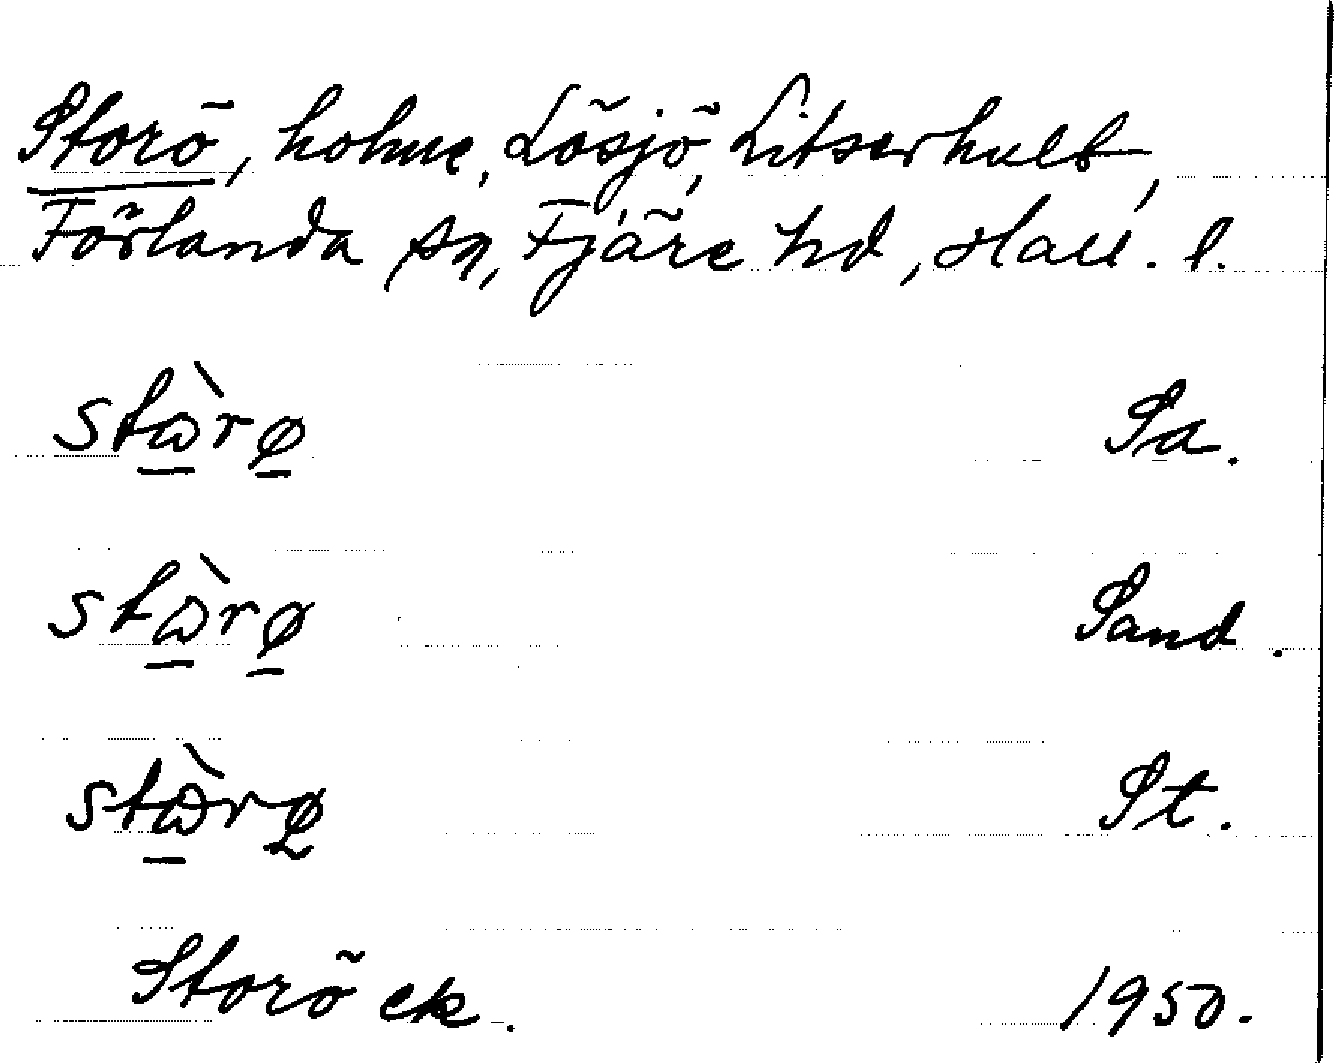 Storö, holme, Lösjö, Litserhult,
Förlanda sn, Fjäre hd, Hall. l.
stɷ̀rø Sa.
stɷ̀rø Sand.
stɷ̀rø St.
Storö ek. 1950.